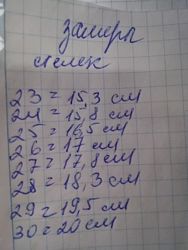 замеры
стелек
23 = 15,3 см
24 = 15,8 см
25 = 16,5 см
26 = 17 см
27 = 17,8 см
28 = 18,3 см
29 = 19,5 см
30 = 20 см